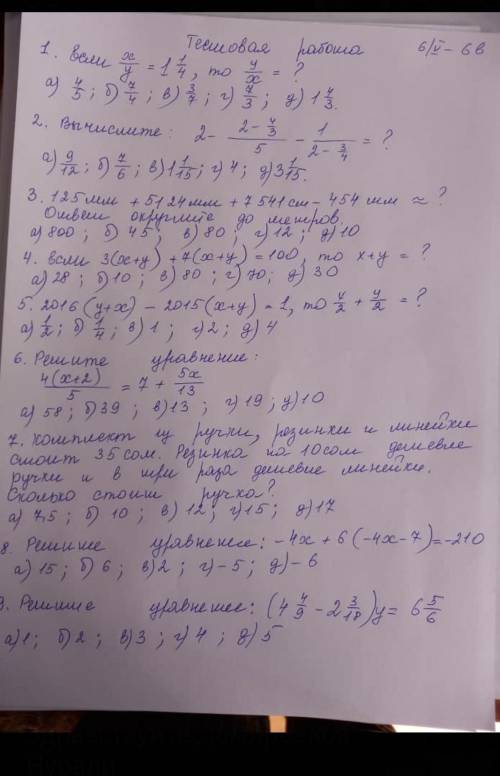 Тестовая работа 6/V - 6в
1. Если x/y = 1 1/4, то y/x = ?
а) 4/5; б) 7/4; в) 3/7; г) 7/3; д) 1 4/3.
2. Вычислите: 2 - (2 - 4/3)/5 - 1/(2 - 3/4) = ?
а) 9/12; б) 7/6; в) 1 1/15; г) 4; д) 3 1/15.
3. 125мм + 5124мм + 7541см - 454мм ≈ ?
Ответ округлите до метров.
а) 800; б) 45; в) 80; г) 12; д) 10
4. Если 3(x+y) + 7(x+y) = 100, то x+y = ?
а) 28; б) 10; в) 80; г) 70; д) 30
5. 2016(y+x) - 2015(x+y) = 1, то x/2 + y/2 = ?
а) 1/2; б) 1/4; в) 1; г) 2; д) 4
6. Решите уравнение:
4(x+2)/5 = 7 + 5x/13
а) 58; б) 39; в) 13; г) 19; д) 10
7. Комплект из ручки, резинки и линейки
стоит 35 сом. Резинка на 10 сом дешевле
ручки и в три раза дешевле линейки.
Сколько стоит ручка?
а) 7,5; б) 10; в) 12; г) 15; д) 17
8. Решите уравнение: -4x + 6(-4x-7) = -210
а) 15; б) 6; в) 2; г) -5; д) -6
9. Решите уравнение: (4 4/9 - 2 3/18)y = 6 5/6
а) 1; б) 2; в) 3; г) 4; д) 5